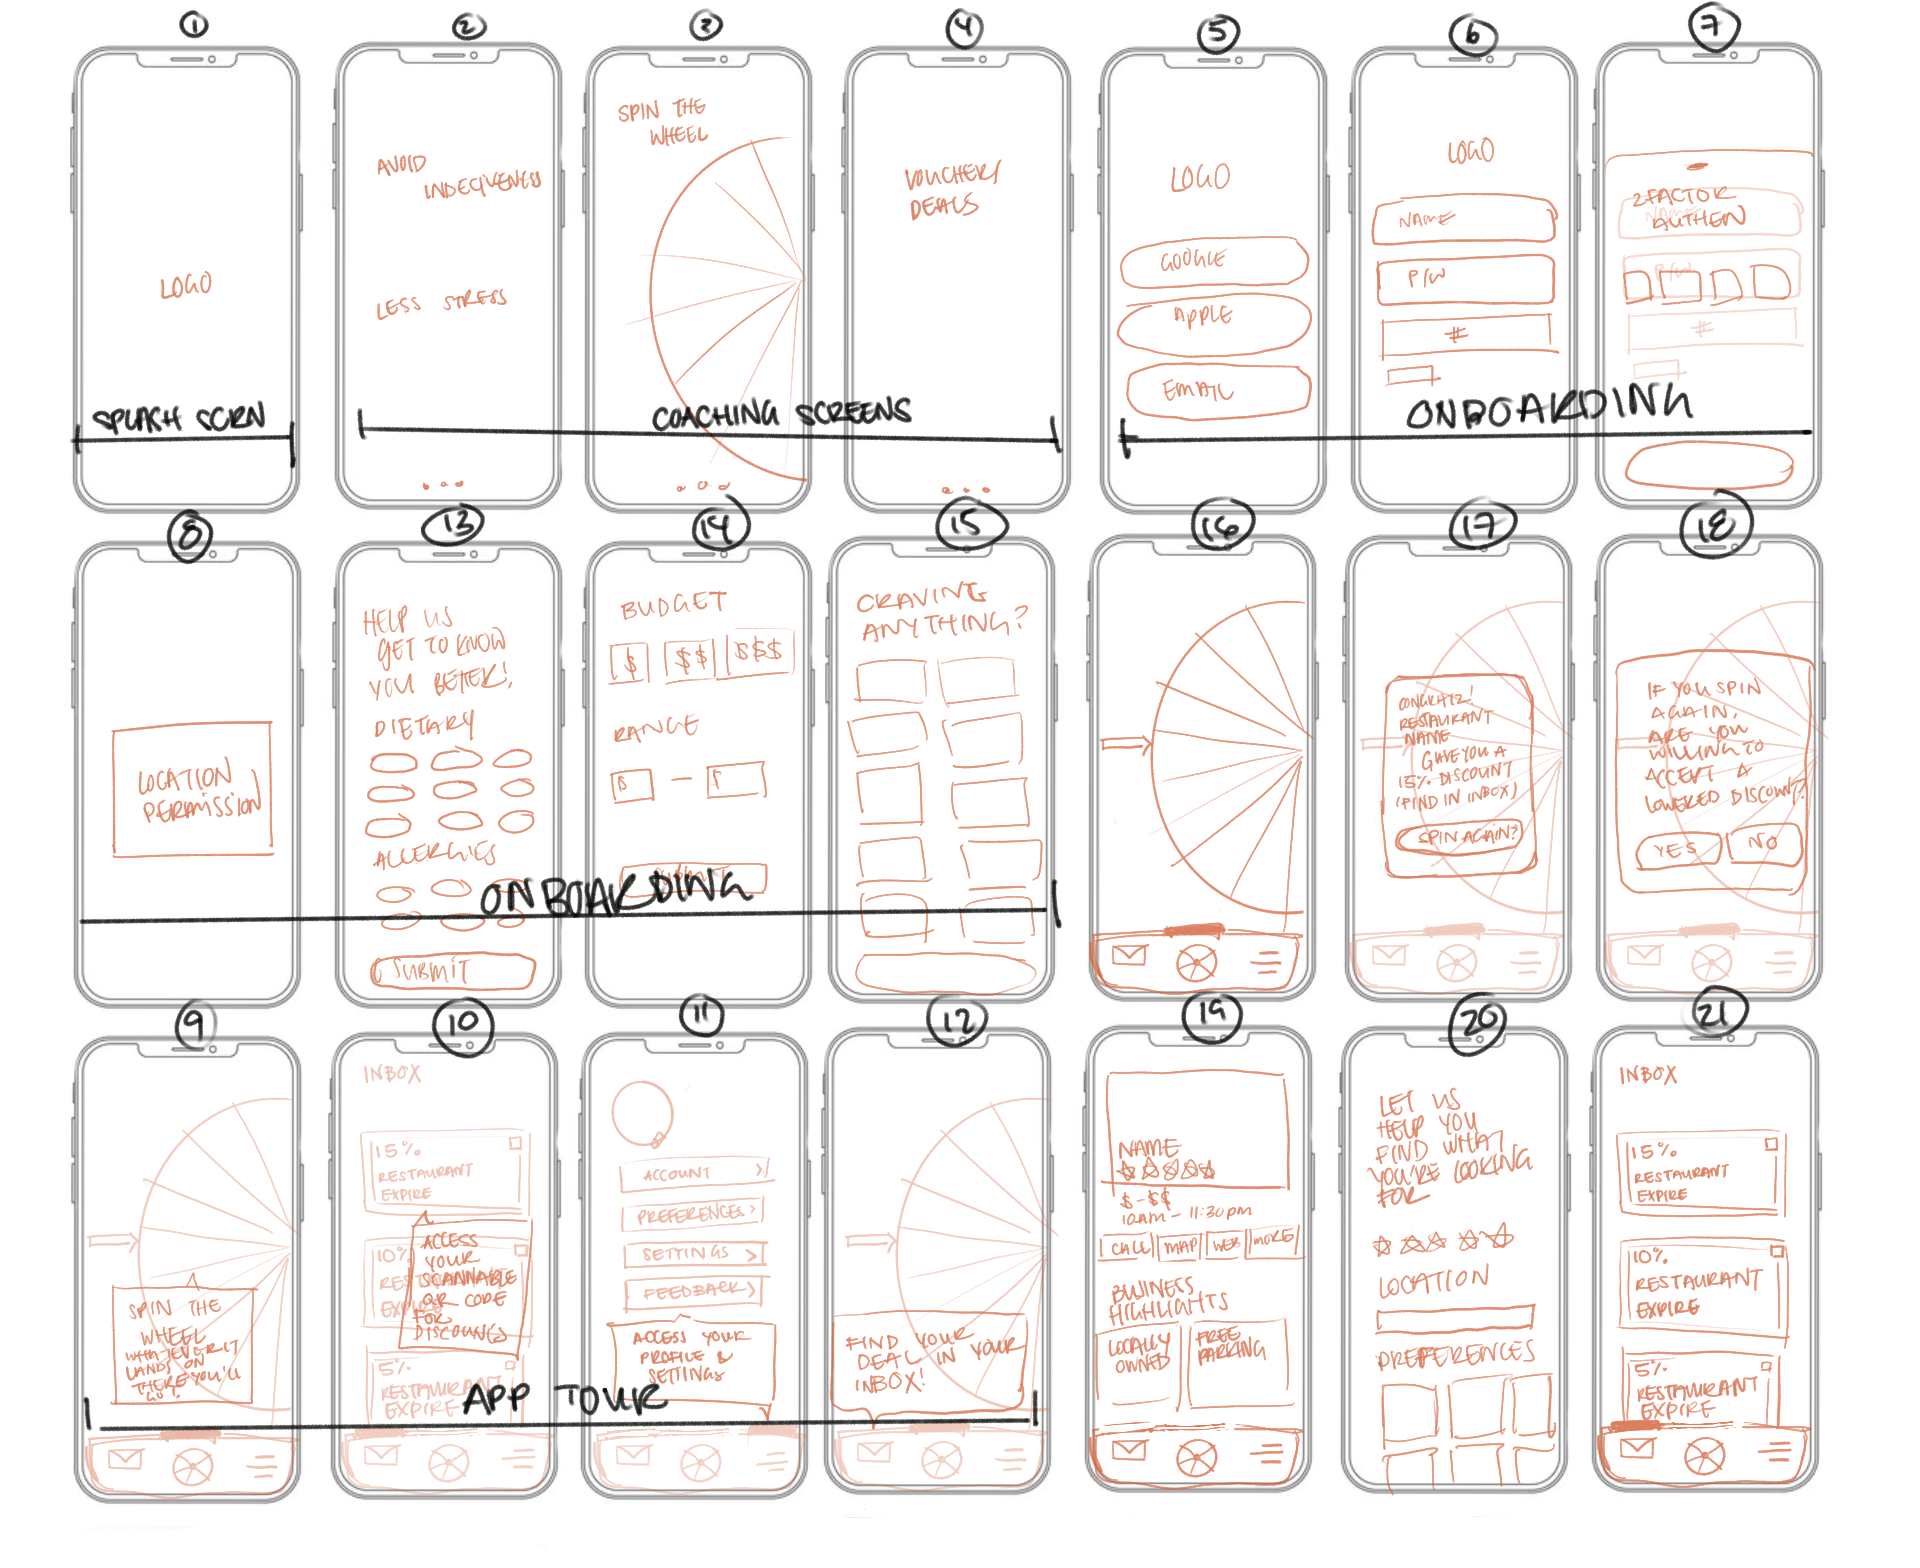 1
2
3
4
5
6
7
LOGO
SPLASH SCRN
AVOID
INDECIVENESS
LESS STRESS
SPIN THE
WHEEL
COACHING SCREENS
VOUCHERS
DEALS
LOGO
GOOGLE
APPLE
EMAIL
LOGO
NAME
P/W
#
ONBOARDING
2 FACTOR
AUTHEN
NAME
P/W
#
8
13
14
15
16
17
18
LOCATION
PERMISSION
HELP US
GET TO KNOW
YOU BETTER!
DIETARY
ALLERGIES
SUBMIT
ONBOARDING
BUDGET
$ $$ $$$
RANGE
$ — $
SUBMIT
CRAVING
ANYTHING?
CONGRATZ!
RESTAURANT
NAME
GAVE YOU A
15% DISCOUNT
(FIND IN INBOX)
SPIN AGAIN?
IF YOU SPIN
AGAIN,
ARE YOU
WILLING TO
ACCEPT A
LOWERED DISCOUNT?
YES NO
9
10
11
12
19
20
21
SPIN THE
WHEEL
WHATEVER IT
LANDS ON
THERE YOU'LL
GO!
INBOX
15%
RESTAURANT
EXPIRE
10%
RESTAURANT
EXPIRE
ACCESS
YOUR
SCANNABLE
QR CODE
FOR
DISCOUNTS
5%
RESTAURANT
EXPIRE
APP TOUR
ACCOUNT >
PREFERENCES >
SETTINGS >
FEEDBACK >
ACCESS YOUR
PROFILE &
SETTINGS
FIND YOUR
DEAL IN YOUR
INBOX!
NAME
$-$$
10AM - 11:30PM
CALL MAP WEB MORE
BUSINESS
HIGHLIGHTS
LOCALLY
OWNED
FREE
PARKING
LET US
HELP YOU
FIND WHAT
YOU'RE LOOKING
FOR
LOCATION
PREFERENCES
INBOX
15%
RESTAURANT
EXPIRE
10%
RESTAURANT
EXPIRE
5%
RESTAURANT
EXPIRE